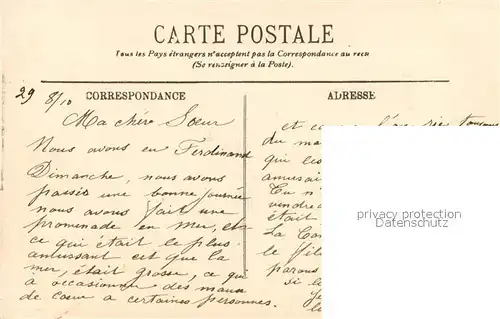 CARTE POSTALE
Tous les Pays étrangers n'acceptent pas la Correspondance au recto
(Se renseigner à la Poste).
CORRESPONDANCE
ADRESSE
29 8/10
Ma chère Sœur
Nous avons eu Ferdinand
Dimanche, nous avons
passés une bonne journée
nous avons fait une
promenade en mer, et
ce qui était le plus
amusant c'est que la
mer, était grosse, ce qui
a occasionné des maux
de cœur a certaines personnes.
et
du ma
qui es
amusai
Tu n'
vendre
était
La Car
le fils
parons
si l
privacy protection
Datenschutz